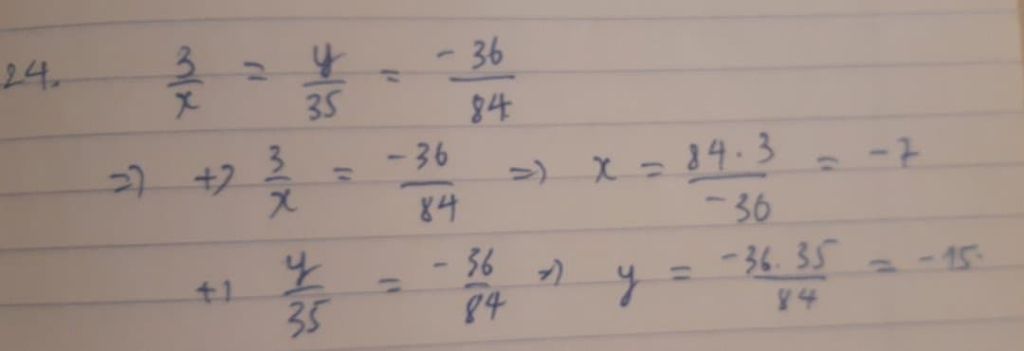 24. 3/x = y/35 = -36/84
=> +) 3/x = -36/84 => x = 84.3/-36 = -7
+) y/35 = -36/84 => y = -36.35/84 = -15.